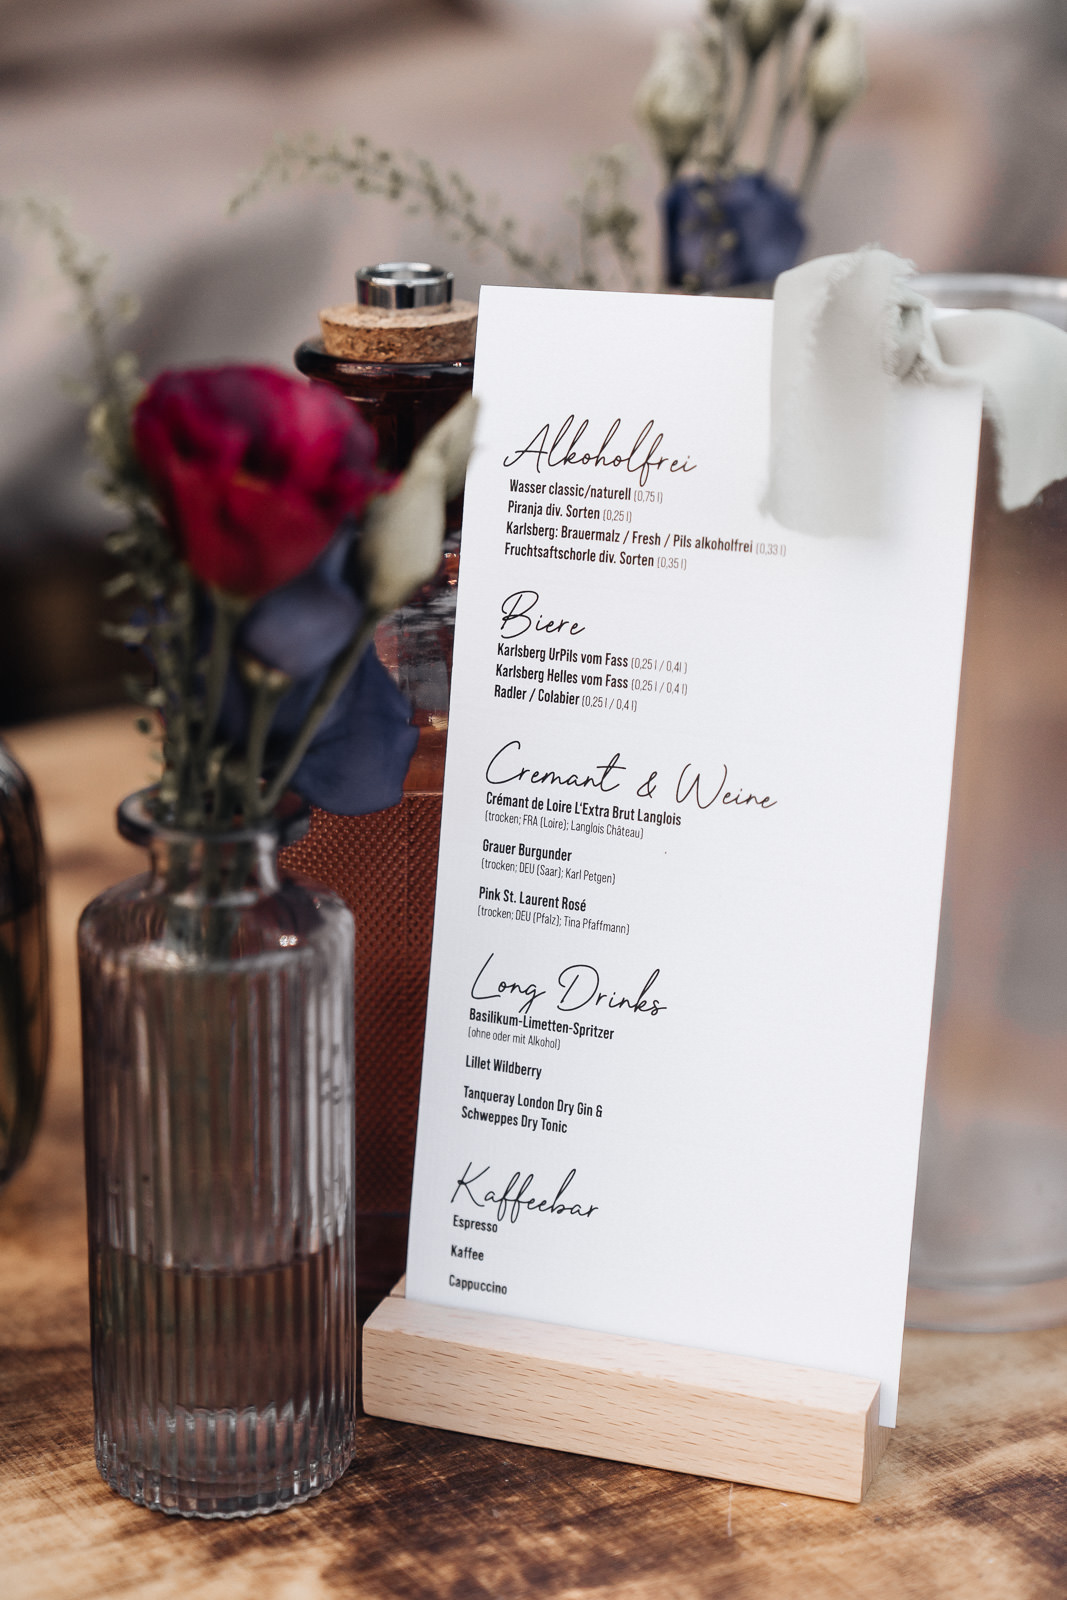 Alkoholfrei
Wasser classic/naturell (0,75 l)
Piranja div. Sorten (0,25 l)
Karlsberg: Brauermalz / Fresh / Pils alkoholfrei (0,33 l)
Fruchtsaftschorle div. Sorten (0,35 l)
Biere
Karlsberg UrPils vom Fass (0,25 l / 0,4l )
Karlsberg Helles vom Fass (0,25 l / 0,4 l)
Radler / Colabier (0,25 l / 0,4 l)
Cremant & Weine
Crémant de Loire L'Extra Brut Langlois
(trocken; FRA (Loire); Langlois Château)
Grauer Burgunder
(trocken; DEU (Saar); Karl Petgen)
Pink St. Laurent Rosé
(trocken; DEU (Pfalz); Tina Pfaffmann)
Long Drinks
Basilikum-Limetten-Spritzer
(ohne oder mit Alkohol)
Lillet Wildberry
Tanqueray London Dry Gin &
Schweppes Dry Tonic
Kaffeebar
Espresso
Kaffee
Cappuccino